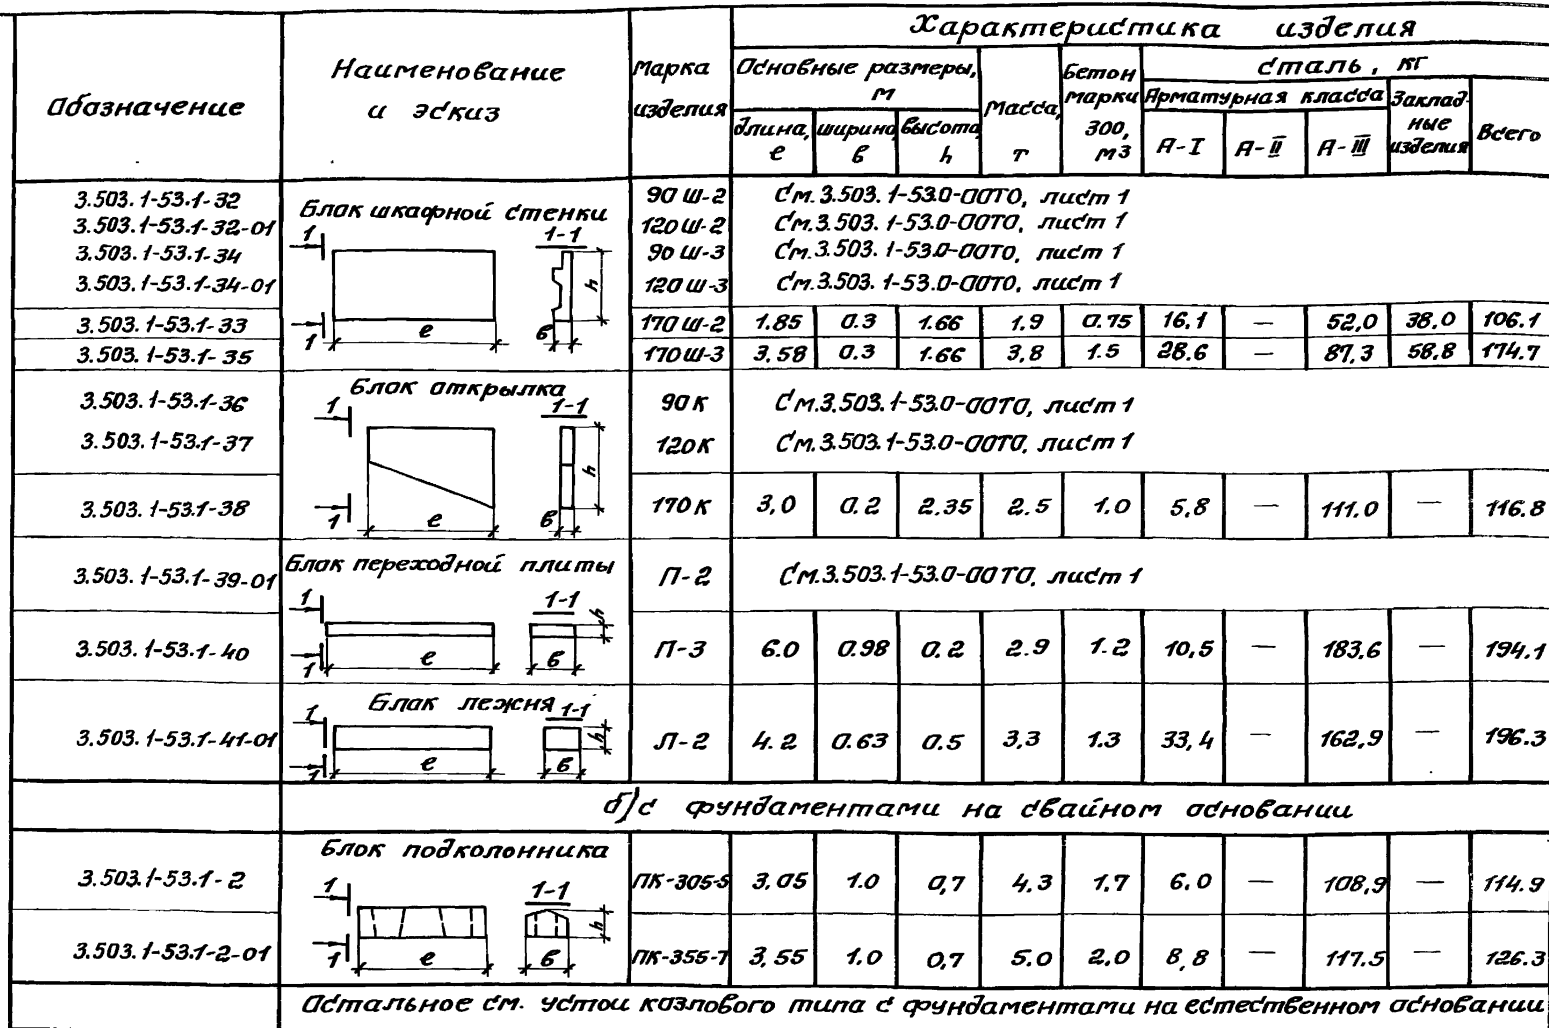 Характеристика изделия
Обозначение
Наименование
и эскиз
Марка
изделия
Основные размеры,
м
длина,
ℓ
ширина
в
высота
h
Масса,
т
Бетон
марки
300,
м3
Сталь, кг
Арматурная класса
А-I
А-II
А-III
Заклад-
ные
изделия
Всего
3.503.1-53.1-32
Блок шкафной стенки
90 Ш-2 См. 3.503.1-53.0-00ТО, лист 1
3.503.1-53.1-32-01 120 Ш-2 См. 3.503.1-53.0-00ТО, лист 1
3.503.1-53.1-34 90 Ш-3 См. 3.503.1-53.0-00ТО, лист 1
3.503.1-53.1-34-01 120 Ш-3 См. 3.503.1-53.0-00ТО, лист 1
1 1-1 h
1 ℓ в
3.503.1-53.1-33 170 Ш-2 1.85 0.3 1.66 1.9 0.75 16.1 — 52,0 38,0 106.1
3.503.1-53.1-35 170 Ш-3 3,58 0.3 1.66 3,8 1.5 28.6 — 87,3 58,8 174.7
Блок открылка
3.503.1-53.1-36 90К См. 3.503.1-53.0-00ТО, лист 1
3.503.1-53.1-37 120К См. 3.503.1-53.0-00ТО, лист 1
1 1-1 h
1 ℓ в
3.503.1-53.1-38 170К 3,0 0.2 2.35 2.5 1.0 5,8 — 111.0 — 116.8
Блок переходной плиты
3.503.1-53.1-39-01 П-2 См. 3.503.1-53.0-00ТО, лист 1
1 1-1 h
1 ℓ в
3.503.1-53.1-40 П-3 6.0 0.98 0.2 2.9 1.2 10,5 — 183,6 — 194.1
Блок лежня
1 1-1 h
1 ℓ в
3.503.1-53.1-41-01 Л-2 4.2 0.63 0.5 3,3 1.3 33,4 — 162,9 — 196.3
б/с фундаментами на свайном основании
Блок подколонника
3.503.1-53.1-2 ПК-305-5 3,05 1.0 0,7 4,3 1.7 6.0 — 108,9 — 114.9
1 1-1 h
1 ℓ в
3.503.1-53.1-2-01 ПК-355-7 3,55 1.0 0,7 5.0 2,0 8,8 — 117.5 — 126.3
Остальное см. устои козлового типа с фундаментами на естественном основании